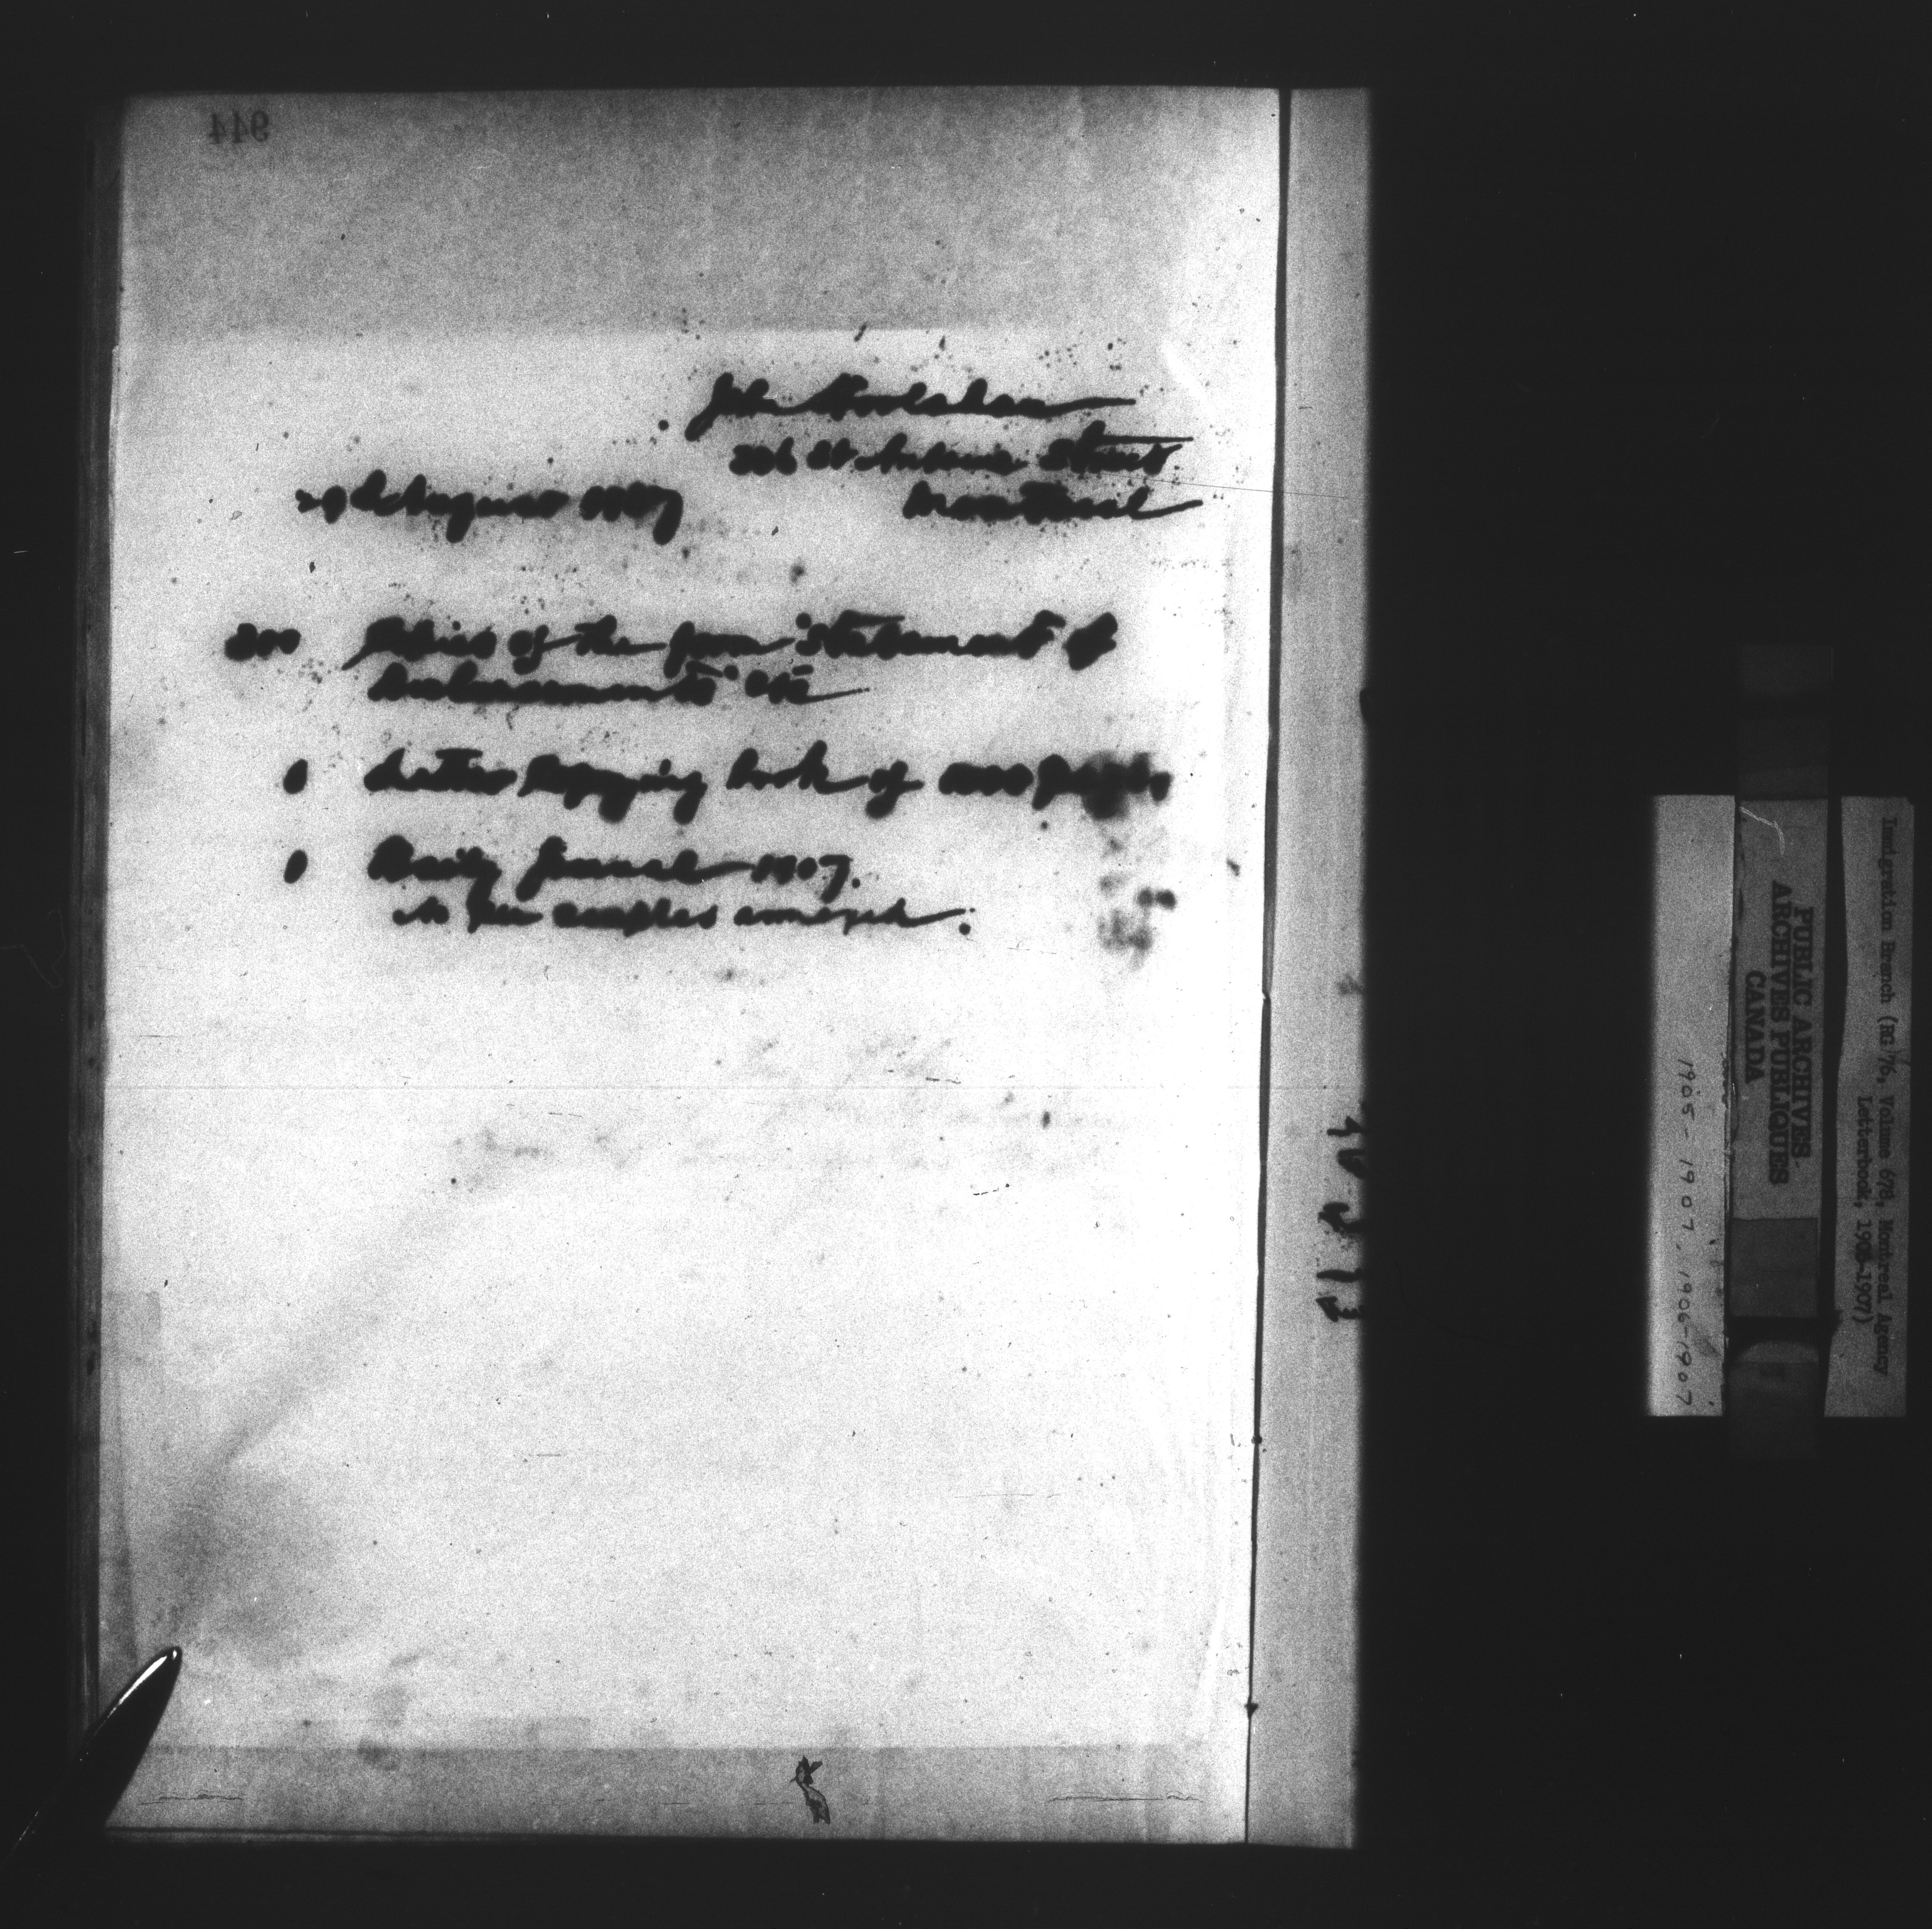 944
John Hoolahan
St Antoine Street
29th August 1907
Montreal
Copies of the form "Statement of
Disbursements" etc
1 Letter Copying book of 1000 pages
1 Daily Journal 1907.
As per samples annexed.
PUBLIC ARCHIVES
ARCHIVES PUBLIQUES
CANADA
Immigration Branch (RG 76, Volume 678, Montreal Agency
Letterbook, 1905-1907)
1905-1907, 1906-1907